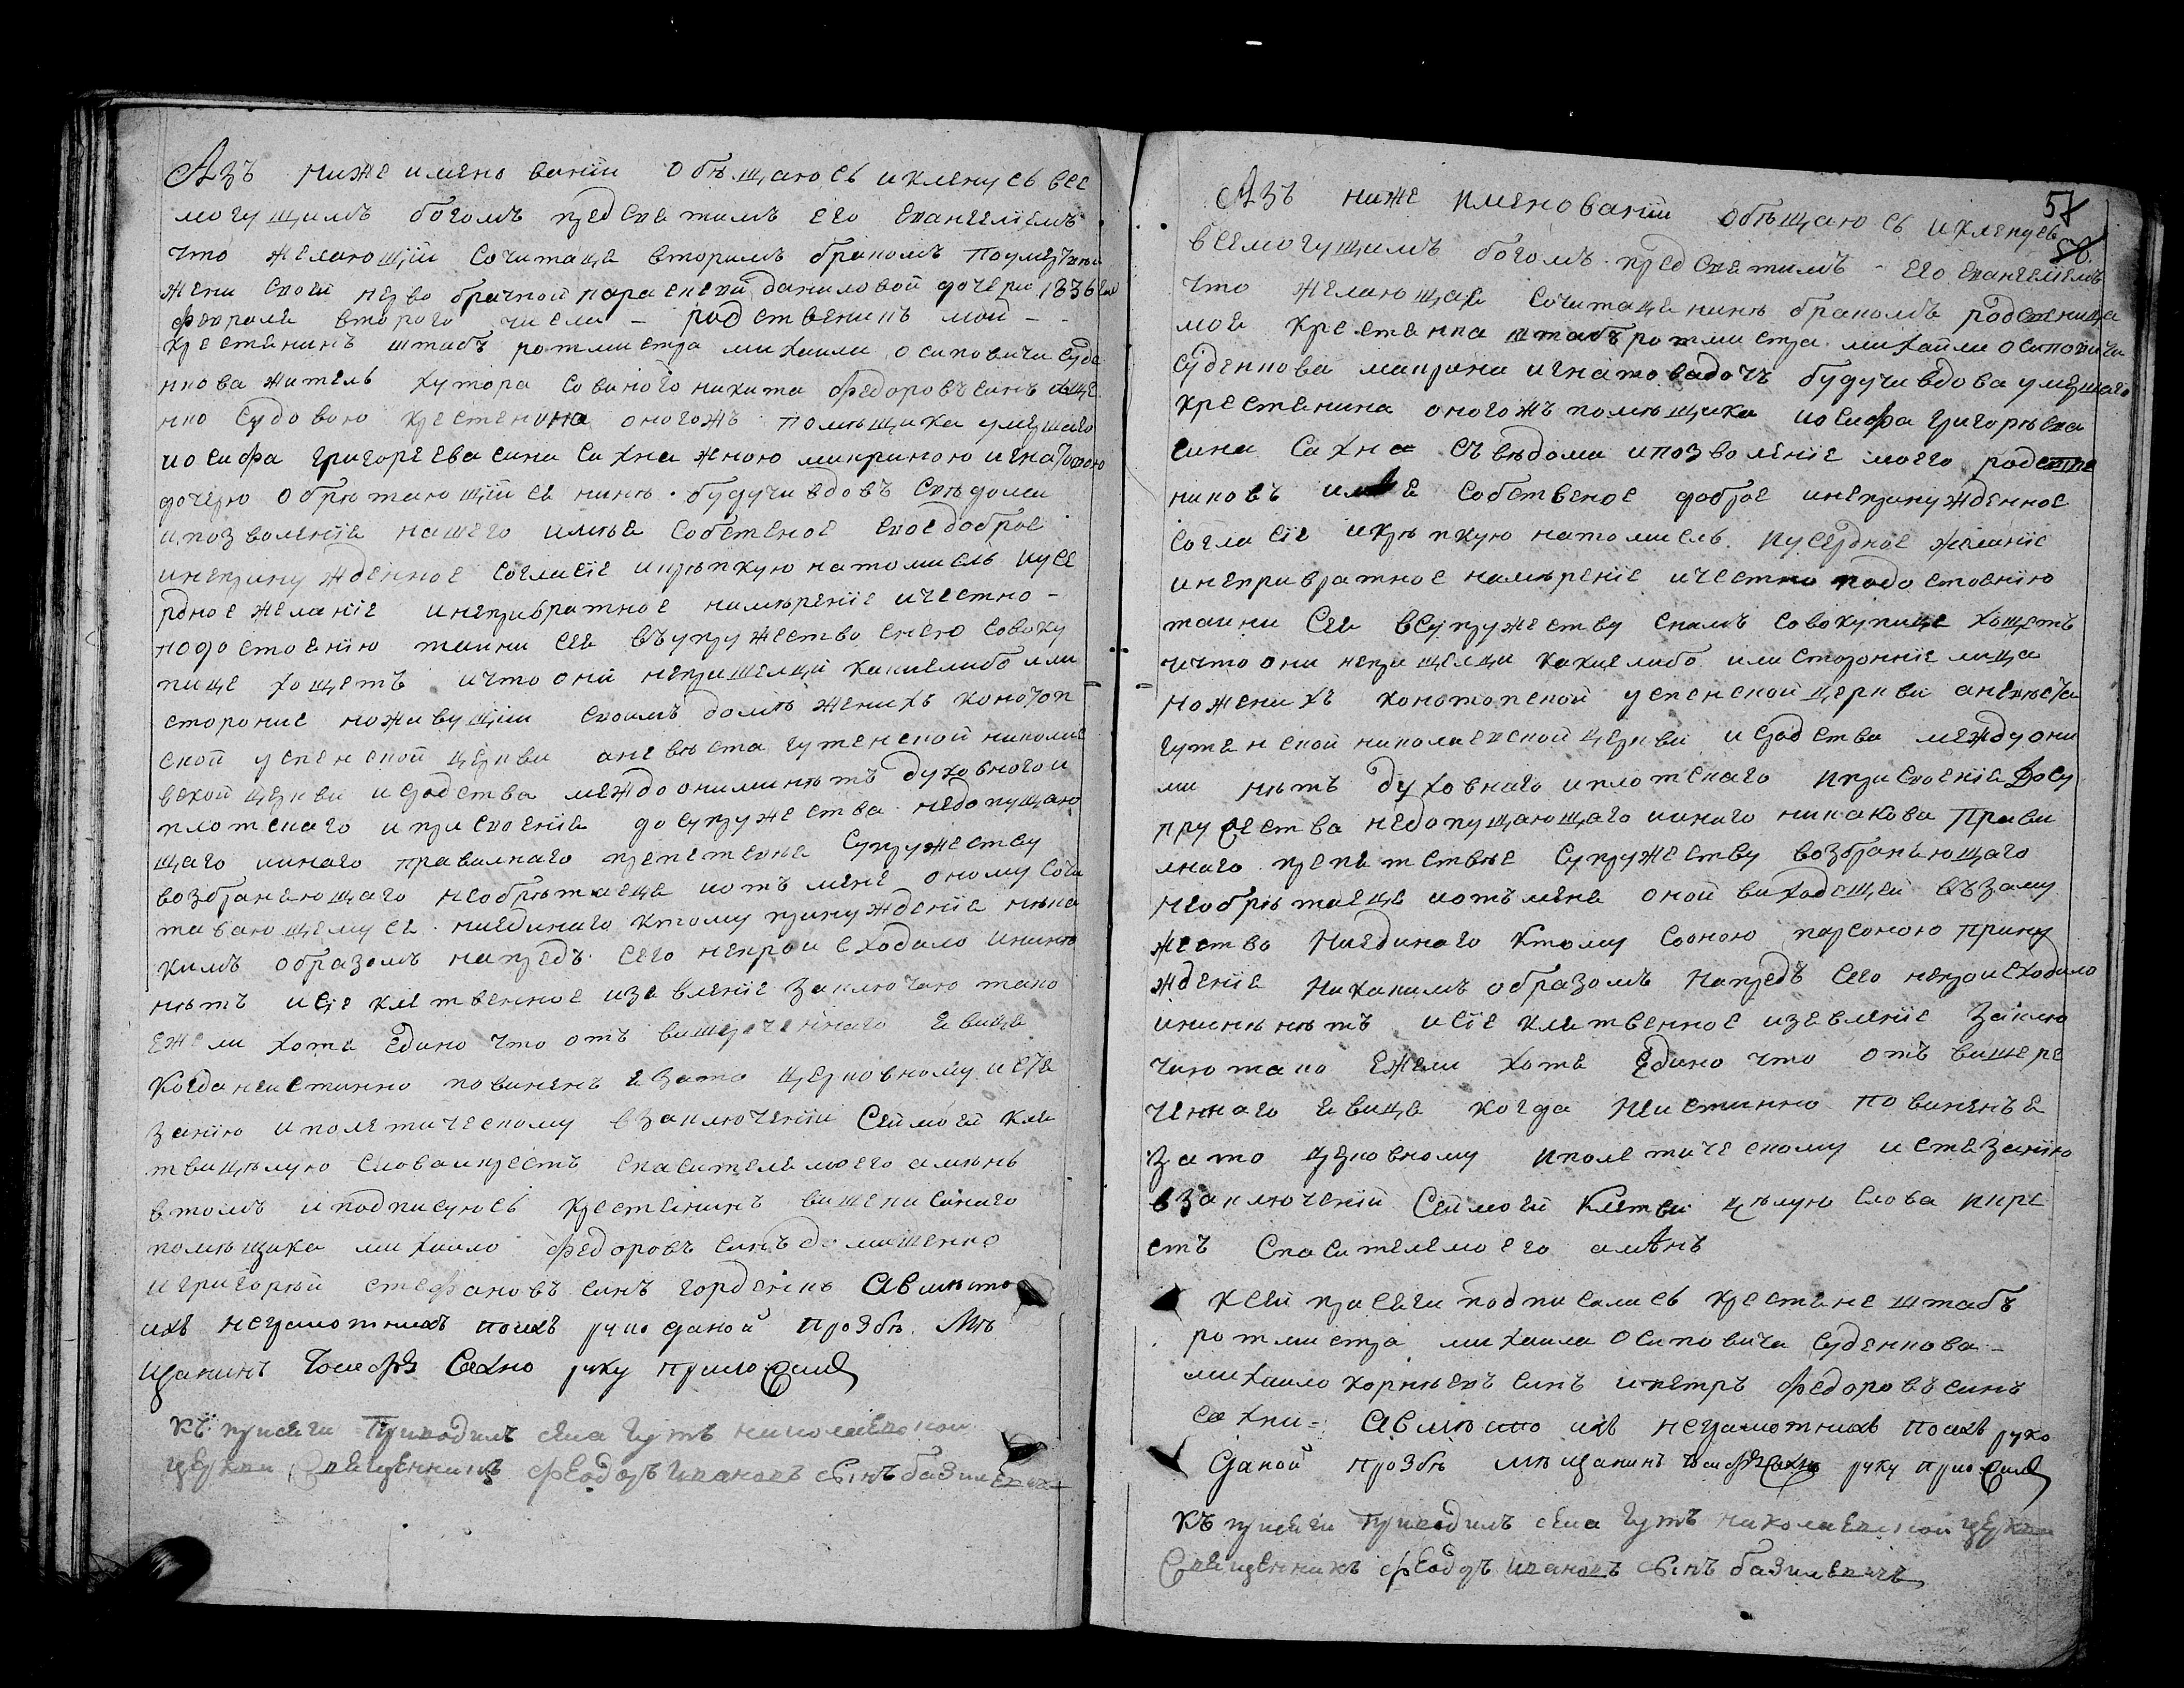 Азъ ниже имено ваніи обѣщаюсь иклянусь все
могущимъ богомъ предсвятимъ его евангеліемъ
что желающій сочитаця вторимъ бракомъ поумертвіи
жени своей перво брачной параскевіи даниловой дочери 1836 года
февраля второго числа – родственикъ мой –
крестянинъ штабъ ротмистра михаила осиповича Суде
нкова житель хутора совиного никита федоровъ синъ
нко Судовою крестянина оногожъ помѣщика умершаго
иосифа григоргева сина Сахна жною микриною игнатовою
дочерю обрѣтающійся нинѣ будучи вдовъ свѣдома
ипозволенія нашего имѣя собственое свое доброе
инепринужденное согласіе икрѣпкую натомисль иусе
рдное желаніе инепривратное намѣреніе ичестно –
подостоянію таини сея въупружество снею совоку
пице хощетъ ичтоони непришелци какиелибо или
стороние ноживущіи своимъ домѣ женихъ конотоп
ской успенской церкви аневѣста гутенской николае
вской церкви исродства междоониминѣтъ духовногои
плотскаго иприсвоенія досупружества недопущаю
щаго ииного правилнаго препятсвія Супружеству
возбраняющаго необрѣтаеця иотъ мене оному сочи
тавающемуся ниединаго ктому принужденіе ника
кимъ образомъ напредъ сего непроисходило ининѣ
нѣтъ исіе клятвенное изявленіе заключаю тако
ежели хотя едино что отъ вишереченнаго явиця
когда неистинно повиненъ язато церковному истя
занію иполетическому взаключеніи Сеймоей кля
твицѣлую словаикрестъ спасителямоего аминь
втомъ иподписуюсь крестянинъ вишеписаного
помѣщика михаило федоровъ синъ домашенко
игригорый стефановъ синъ гордіенкъ Авмѣсто
ихъ неграмотнихъ поихъ рукоданой прозбѣ Мѣ
щанинъ Іосифъ Сахно руку приложилъ
къ присяги приводилъ села гутъ николаевской
церкви Священникъ Феодоръ ивановъ синъ базилевичъ
57
58
Азъ ниже именованіи обѣщаюсь иклянусь
всемогущимъ богомъ предсвятимъ его евангеліемъ
что желающая сочитаця нинѣ бракомъ родственица
моя крестянка штабъ ротмистра михаила осиповича
Суденкова макрина игнатовадочъ будучивдова умершаго
крестянина оногожъ помѣщика иосифа григорѣва
сина Сахна съвѣдома ипозволеніе моего родстве
никовъ имѣя собственое доброе инепринужденное
согласіе икрѣпкую натомисль иусердное желаніе
инепривратное намѣреніе ичестно подостоянію
таини Сея вСупружеству снимъ совокупице хощетъ
ичтоони непришелци какиелибо или сторонніе лица
ноженихъ конотопской успенской церкви аневѣста
гутенской николаевской церкви исродства междуони
ми нѣтъ духовнаго иплотскаго иприсвоенія досу
пружества недопущающаго ииного никакова прави
лнаго препятствіе Супружеству возбраняющаго
необрѣтаеця иотъ мене оной виходящей въ заму
жество ниединаго ктому Соною парсоною прину
жденіе никакимъ образомъ напредъ сего непроисходило
ининѣнѣтъ исіе клятвенное изявленіе заклю
чаю тако ежели хотя едино что отъ вишере
ченнаго явиця когда неистинно повиненъ я
зато церковному иполетическому истязанію
взаключеніи Сеймоей клятви цѣлую слова икре
стъ Спасителямоего аминъ
ксей присяги подписалисъ крестяне штабъ
ротмистра михаила осиповича Суденкова –
михаило корнѣевъ синъ ипетръ федоровъ синъ
сахни – Авмѣсто ихъ неграмотнихъ поихъ руко
даной прозбѣ мѣщанинъ Іосифъ Сахно руку приложилъ
къ присяги приводилъ села гутъ николаевской церкви
Священникъ Феодоръ ивановъ синъ базилевичъ